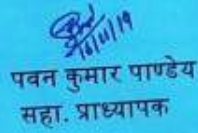 16/11/19
पवन कुमार पाण्डेय
सहा. प्राध्यापक